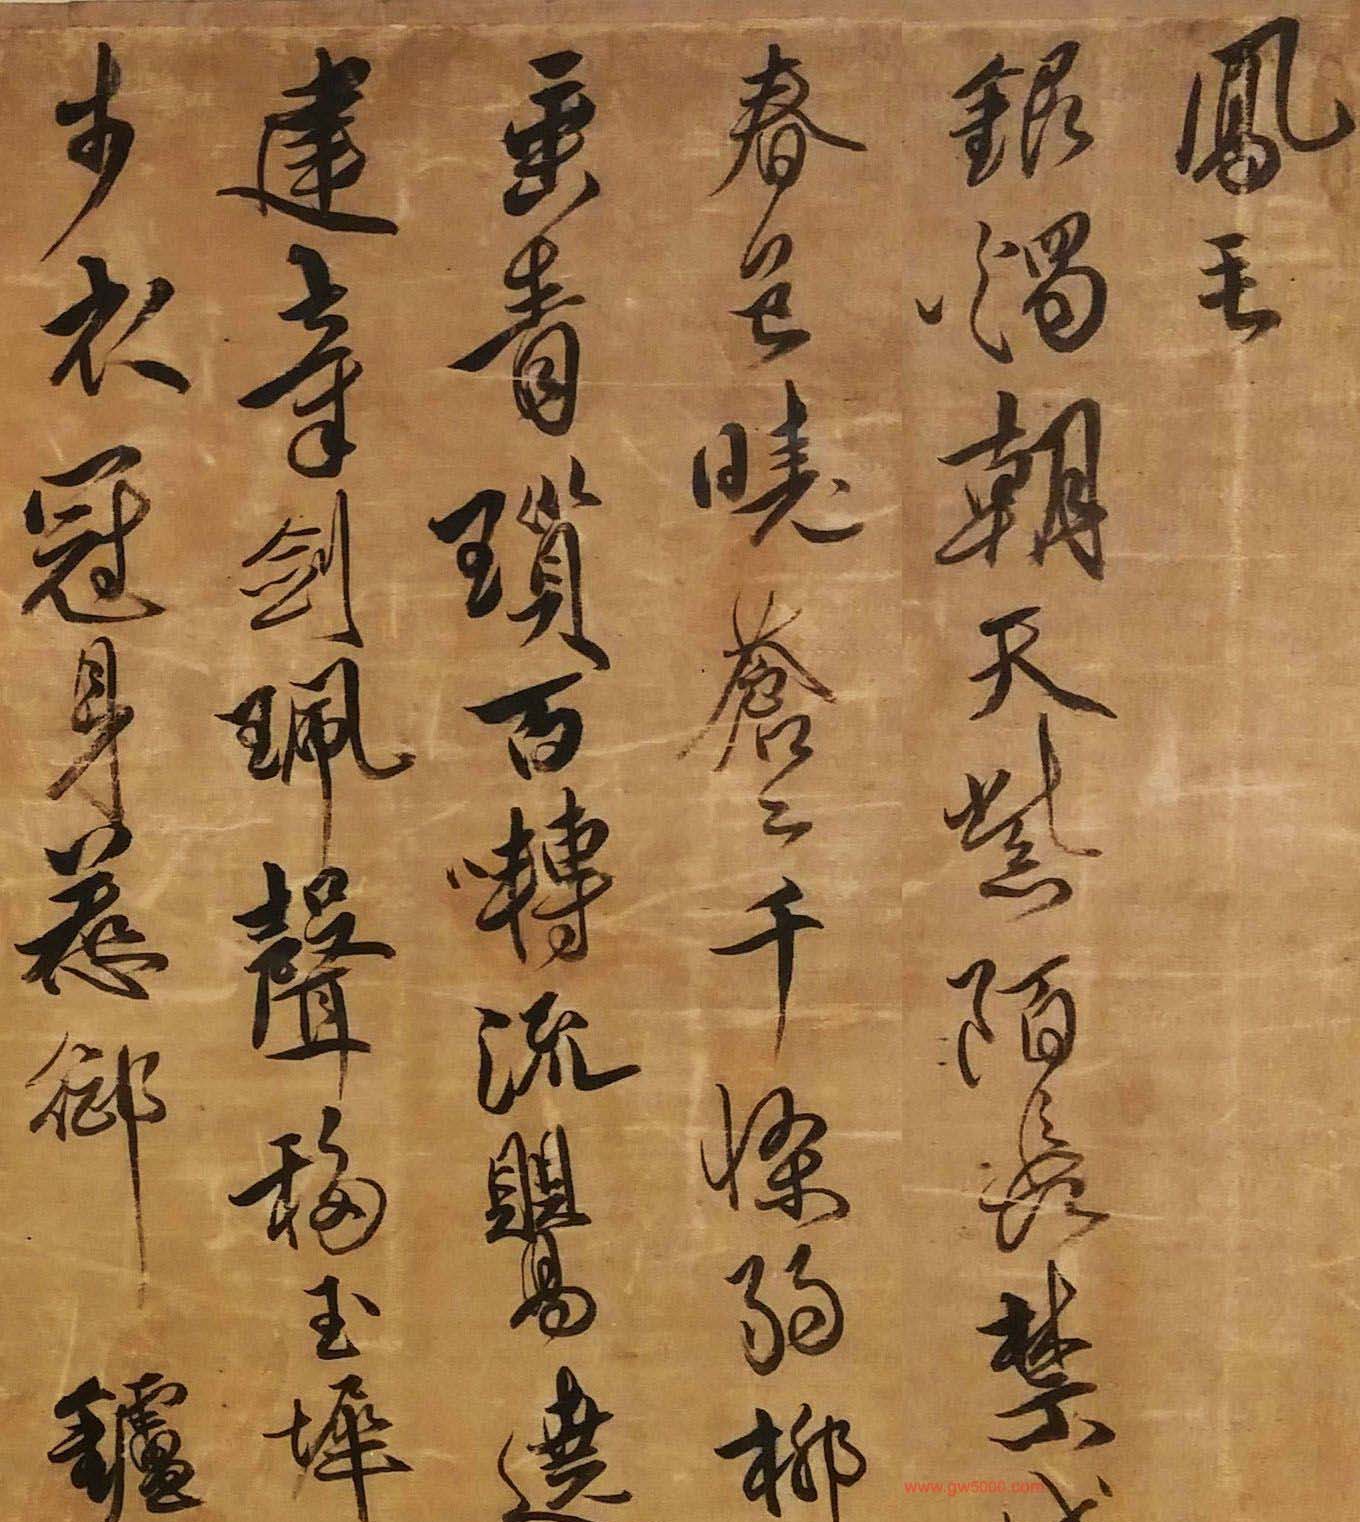 鳳毛
銀燭朝天紫陌長禁
春色曉蒼〻千條弱柳
垂青瑣百囀流鶯遶
建章劍珮聲移玉墀
步衣冠身惹御鑪
www.gw5000.com